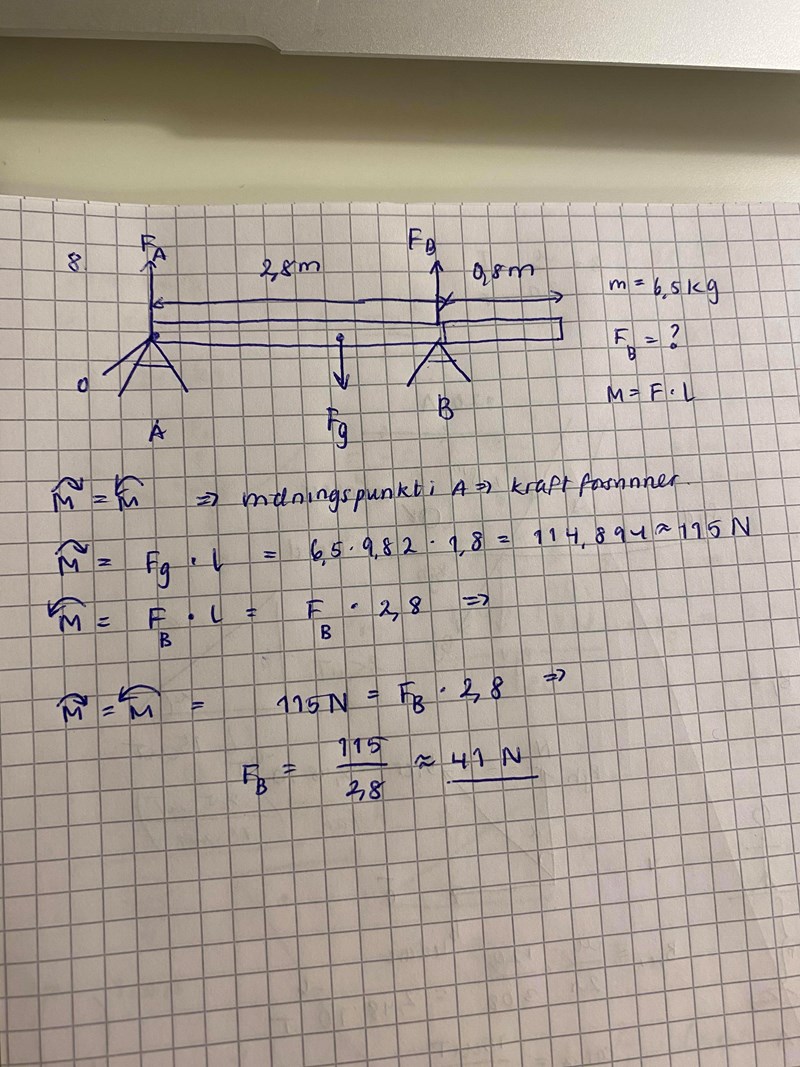 8.
F_A
2,8m
F_B
0,8m
m = 6,5 kg
F_B = ?
M = F · L
O
A
F_g
B
M = M ⇒ mdningspunkt i A ⇒ kraft
M = F_g · L = 6,5 · 9,82 · 1,8 = 114,894 ≈ 115 N
M = F_B · L = F_B · 2,8 ⇒
M = M = 115 N = F_B · 2,8 ⇒
F_B = 115/2,8 ≈ 41 N